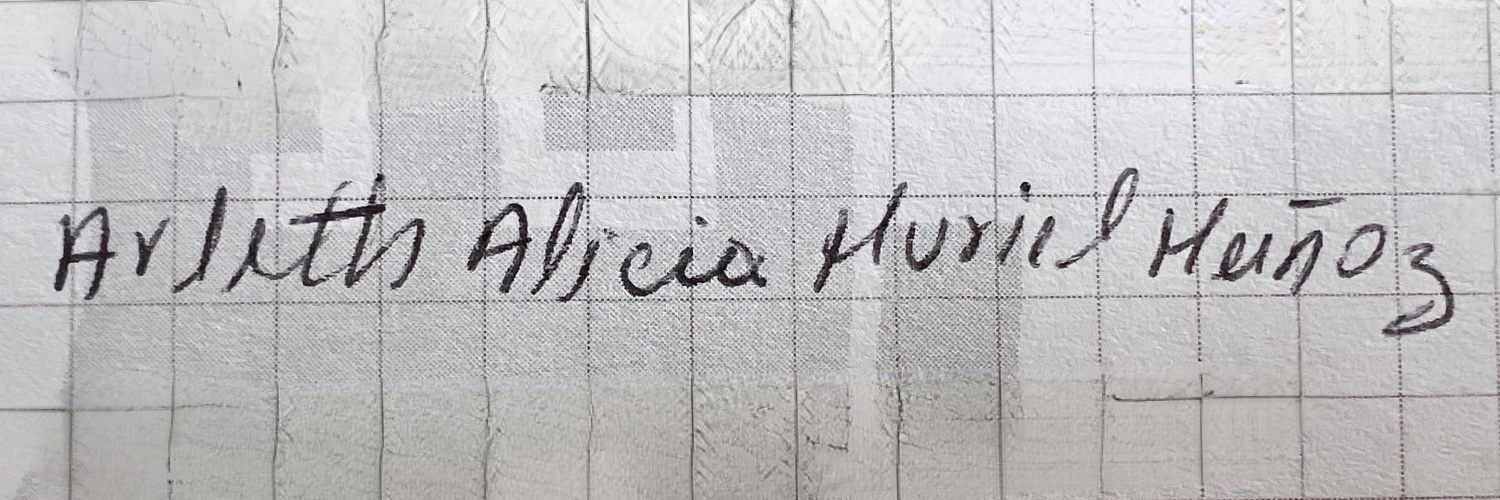 Arleth Alicia Muriel Muñoz